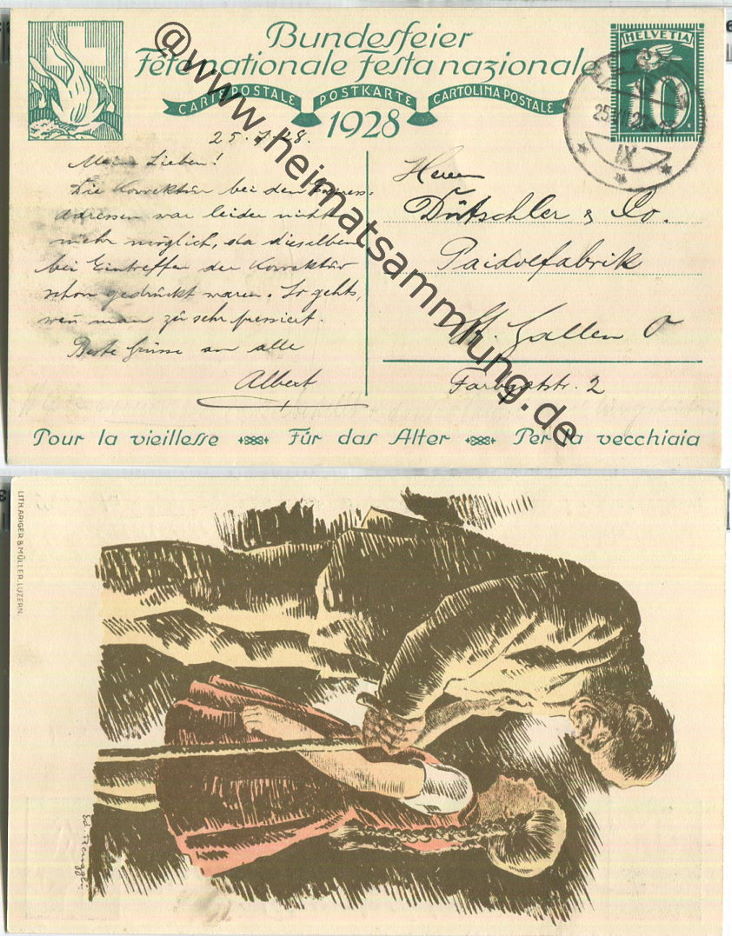 Bundesfeier
Fête nationale Festa nazionale
CARTE POSTALE POSTKARTE CARTOLINA POSTALE
1928
HELVETIA
10
25. 28.
IX
Meine Lieben!
Die Korrektur bei den
adressen war leider nicht
mehr möglich, da dieselben
bei Eintreffen der Korrektur
schon gedruckt waren. So gehts,
wenn man zu sehr pressiert.
Beste Grüsse an alle
Albert
Herren
Dütschler & Co.
Paidolfabrik
St. Gallen O
Farbgutstr. 2
Pour la vieillesse Für das Alter Per la vecchiaia
@www.heimatsammlung.de
LITH. ARIGER & MÜLLER, LUZERN.
Ed. Renggli